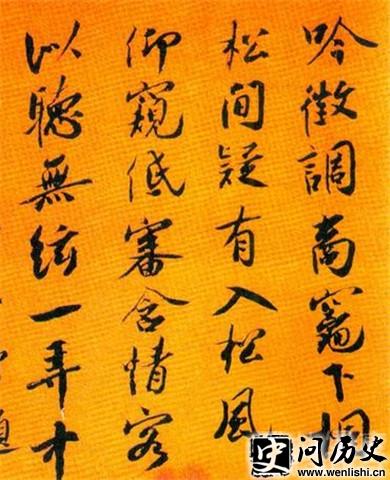 吟徵調商竈下桐
松間疑有入松風
仰窺低審含情客
似聽無絃一弄中
史 问历史
www.wenlishi.cn